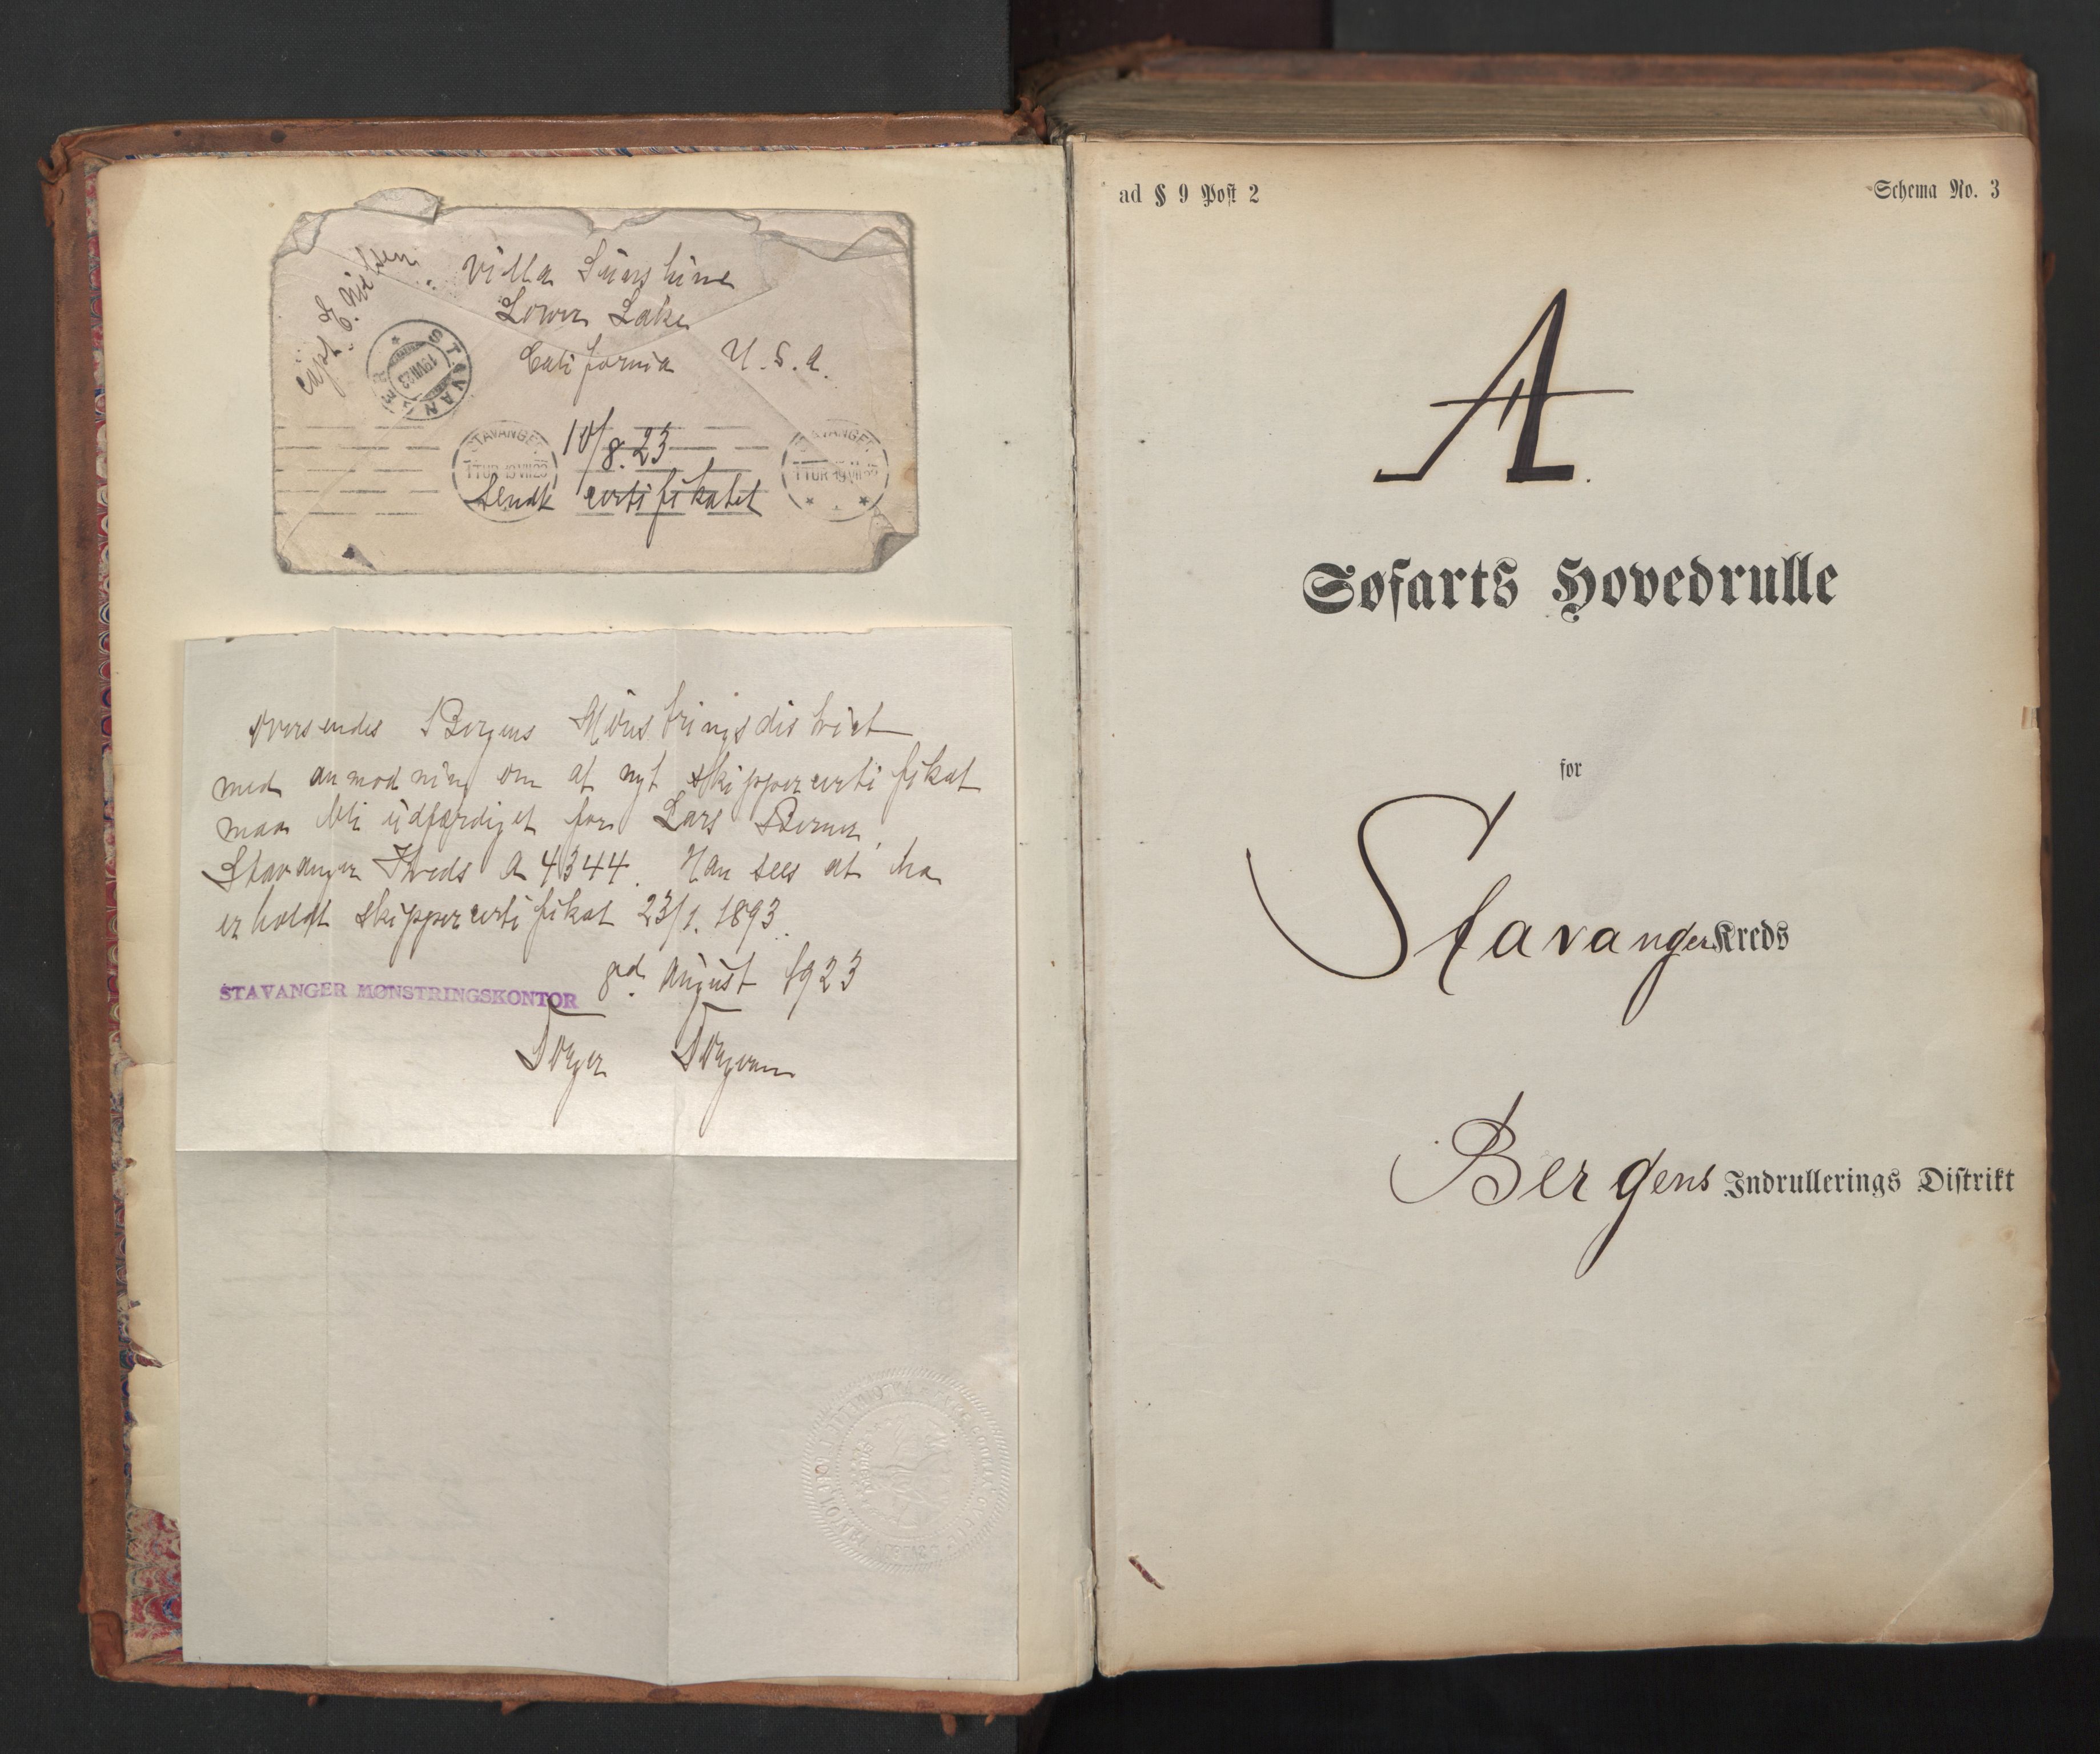 Capt. E. Nielsen
Villa Sunshine
Lower Lake
California U.S.A.
STAVANGER
10/8.23
STAVANGER
1 TUR
STAVANGER
1 TUR
Sendt certifikatet
oversendes Bergens Mönstringsdistrict
med anmodning om at nyt skippercertifikat
maa bli udfærdiget for Lars Berner,
Stavanger Kreds A 4344. Han sees at ha
erholdt skippercertifikat 23/1. 1893.
STAVANGER MØNSTRINGSKONTOR
8de august 1923
ad § 9 Post 2
Schema No. 3
A.
Søfarts Hovedrulle
for
Stavanger Kreds
Bergens Indrullerings Distrikt